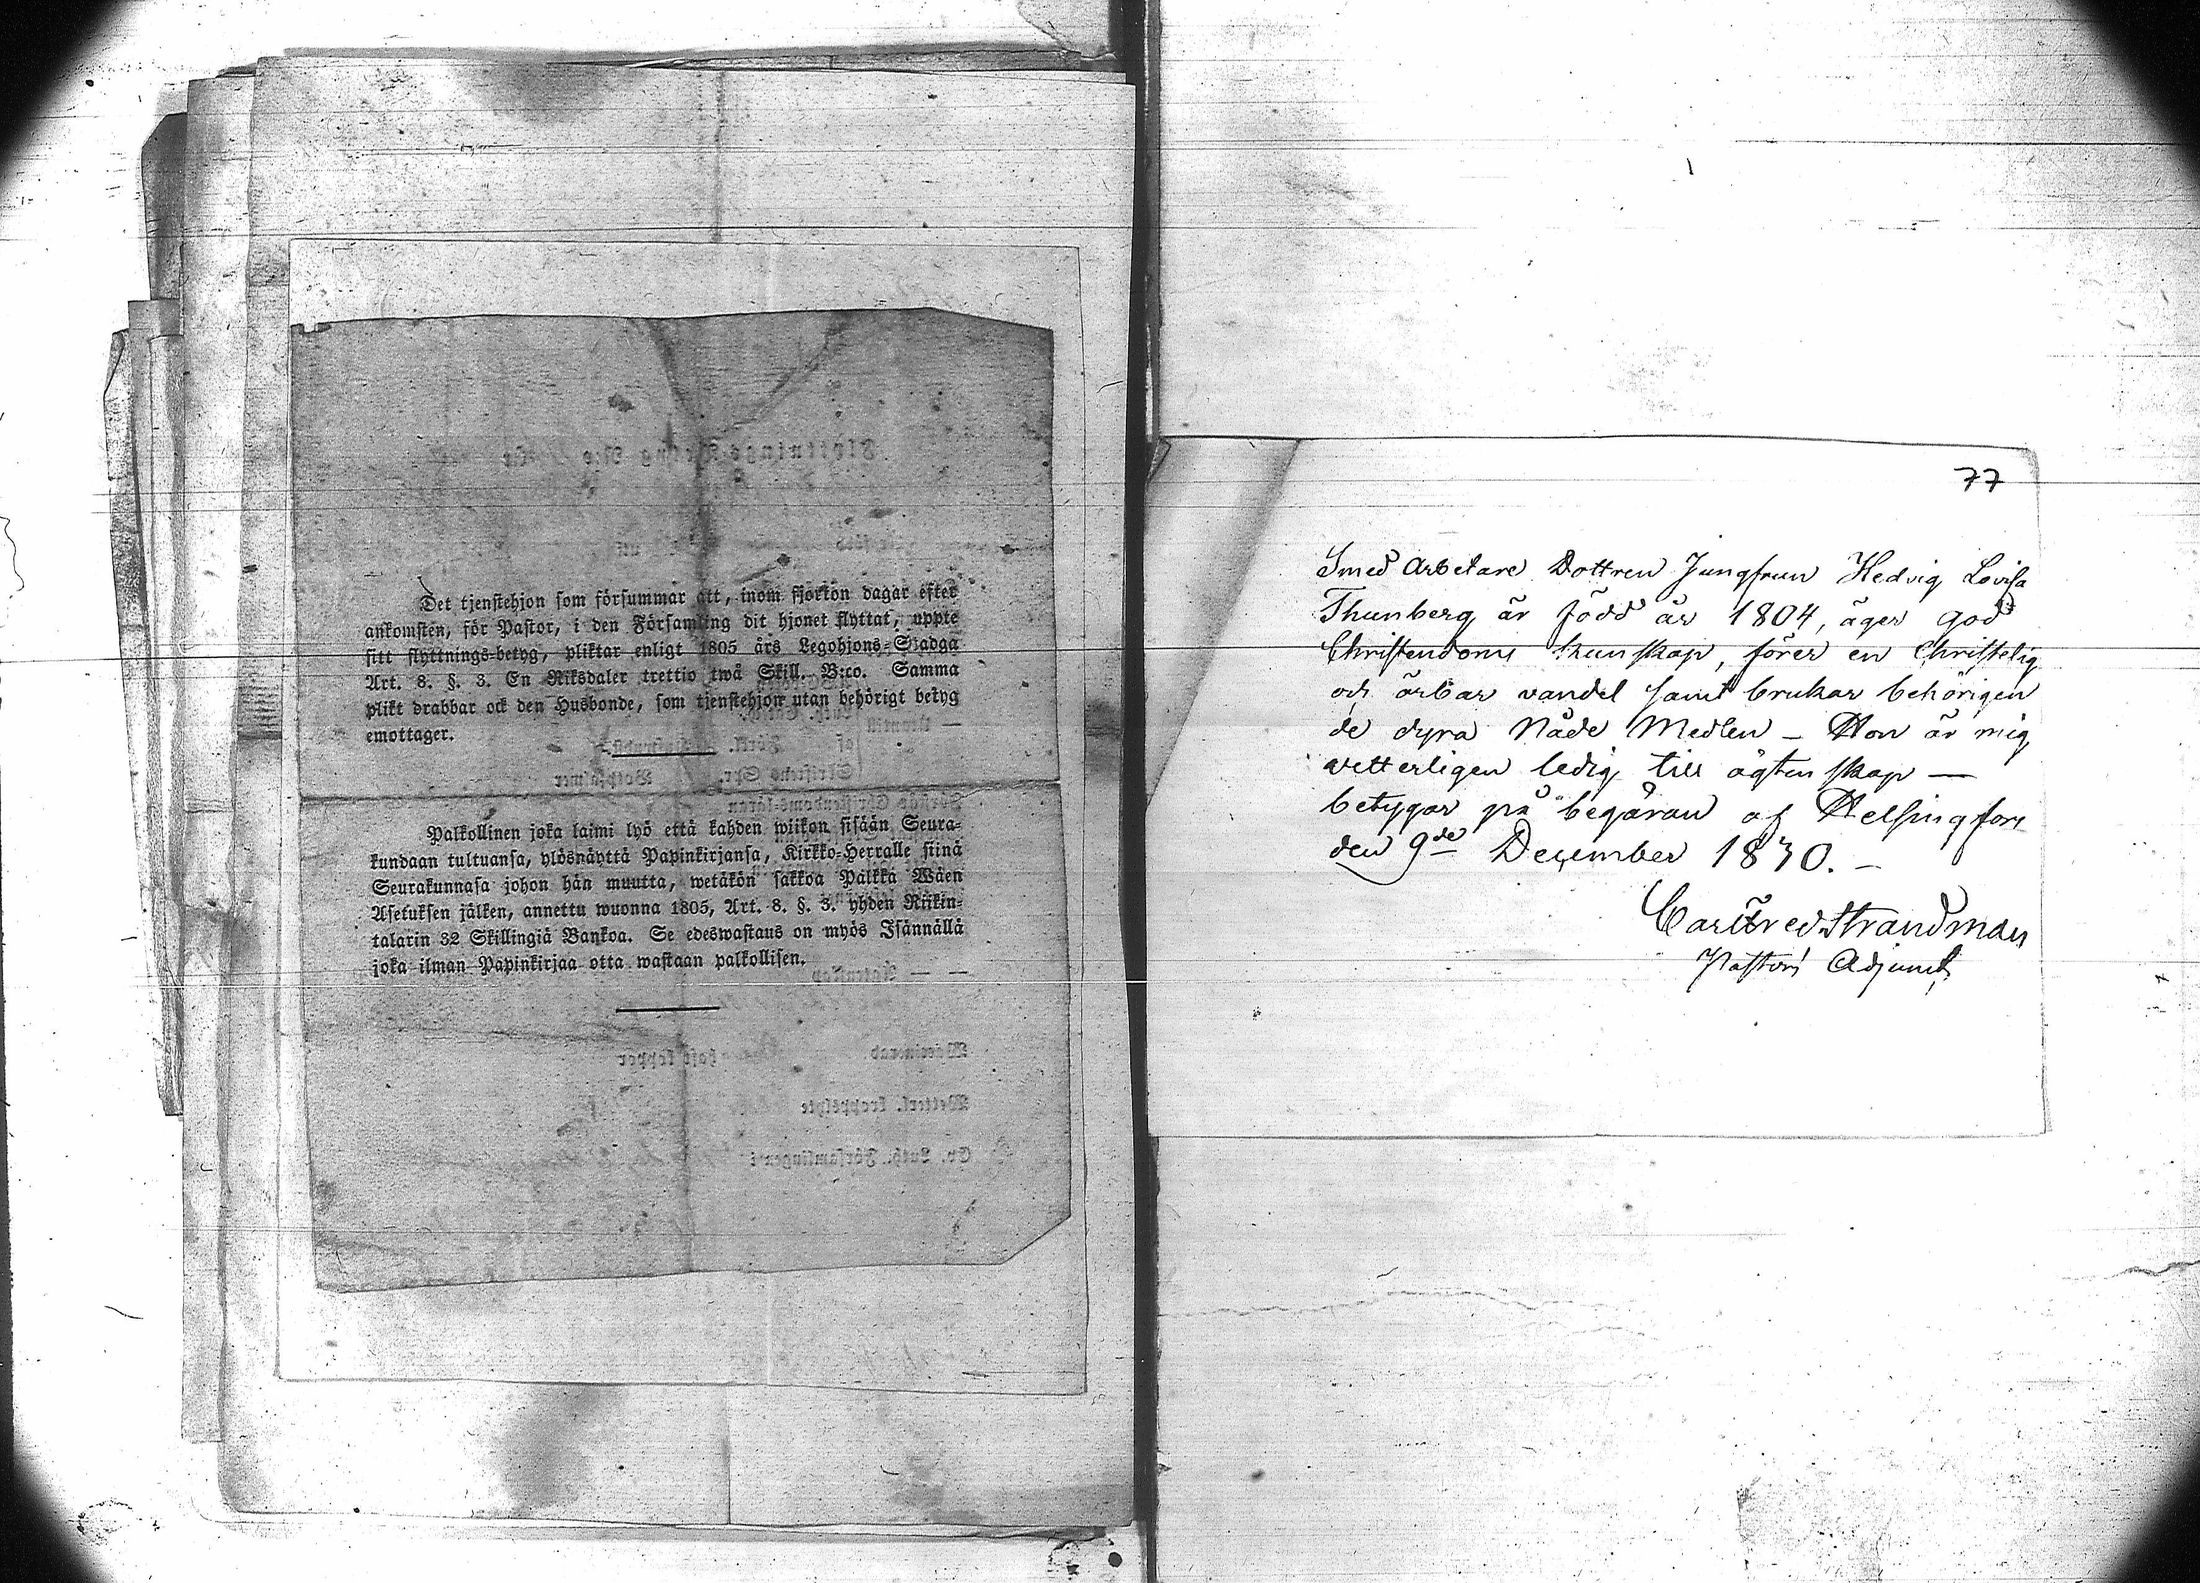 Det tjenstehjon som försummar att, inom fjorton dagar efter
ankomsten, för Pastor, i den Församling dit hjonet flyttat, uppte
sitt flyttnings-betyg, pliktar enligt 1805 års Legohjons-Stadga
Art. 8. §. 3. En Riksdaler trettio twå Skill. B:co. Samma
plikt drabbar ock den Husbonde, som tjenstehjon utan behörigt betyg
emottager.
Palkollinen joka laimi lyö että kahden wiikon sisään Seura-
kundaan tultuansa, ylösnäyttä Papinkirjansa, Kirkko-Herralle siinä
Seurakunnasa johon hän muutta, wetäkön sakkoa Palkka Wäen
Asetuksen jälken, annettu wuonna 1805, Art. 8. §. 3. yhden Riikin-
talarin 32 Skillingiä Bankoa. Se edeswastaus on myös Isännällä
joka ilman Papinkirjaa otta wastaan palkollisen.
77
Smed Arbetare Dottren Jungfrun Hedvig Lovisa
Thunberg är född år 1804, äger god
Christendoms kunskap, förer en Christelig
och ärbar vandel samt brukar behörigen
de dyra Nåde Medlen – Hon är mig
vetterligen ledig till ägtenskap —
betygar på begäran af Helsingfors
den 9de December 1830. –
Carl Fred Strandman
Pastors Adjunct